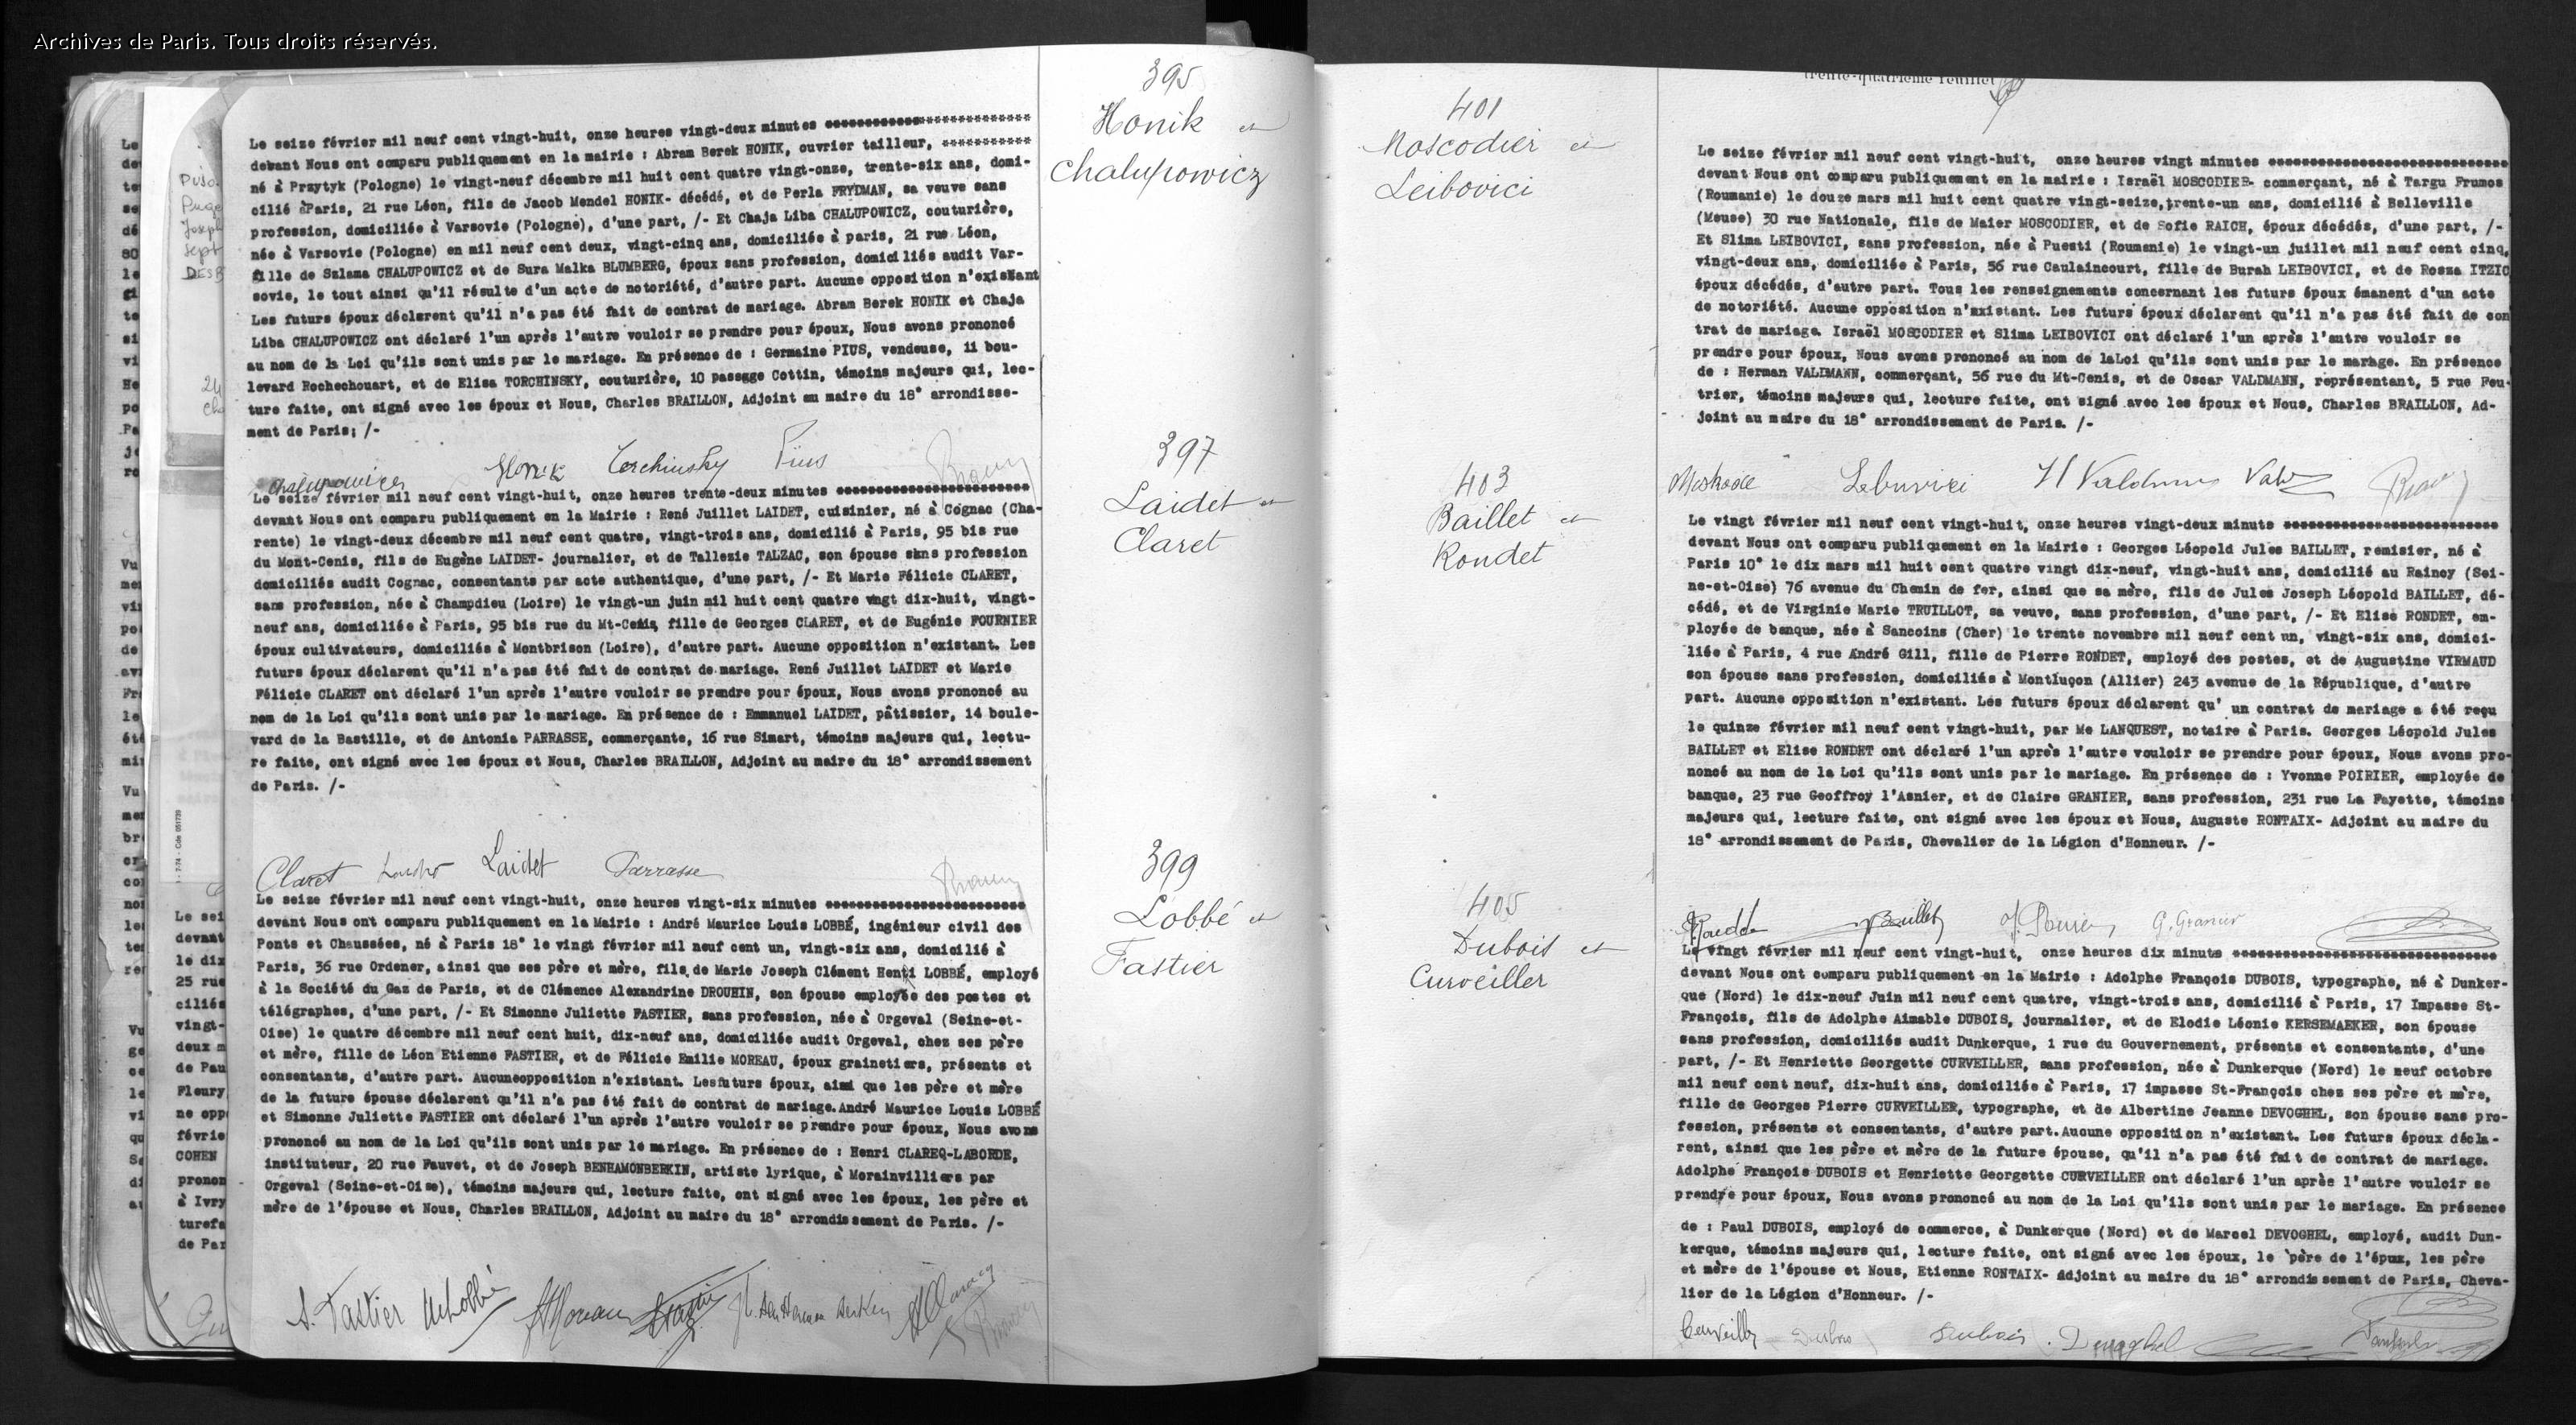 Archives de Paris. Tous droits réservés.
395
Honik et
Chalupowicz
Le seize février mil neuf cent vingt-huit, onze heures vingt-deux minutes
devant Nous ont comparu publiquement en la mairie : Abram Berek HONIK, ouvrier tailleur,
né à Przytyk (Pologne) le vingt-neuf décembre mil huit cent quatre vingt-onze, trente-six ans, domi-
cilié àParis, 21 rue Léon, fils de Jacob Mendel HONIK- décédé, et de Perla FRYDMAN, sa veuve sans
profession, domiciliée à Varsovie (Pologne), d'une part, /- Et Chaja Liba CHALUPOWICZ, couturière,
née à Varsovie (Pologne) en mil neuf cent deux, vingt-cinq ans, domiciliée à paris, 21 rue Léon,
fille de Szlama CHALUPOWICZ et de Sura Malka BLUMBERG, époux sans profession, domiciliés audit Var-
sovie, le tout ainsi qu'il résulte d'un acte de notoriété, d'autre part. Aucune opposition n'existant
Les futurs époux déclarent qu'il n'a pas été fait de contrat de mariage. Abram Berek HONIK et Chaja
Liba CHALUPOWICZ ont déclaré l'un après l'autre vouloir se prendre pour époux, Nous avons prononcé
au nom de la Loi qu'ils sont unis par le mariage. En présence de : Germaine PIUS, vendeuse, 11 bou-
levard Rochechouart, et de Elisa TORCHINSKY, couturière, 10 passage Cottin, témoins majeurs qui, lec-
ture faite, ont signé avec les époux et Nous, Charles BRAILLON, Adjoint au maire du 18° arrondisse-
ment de Paris; /-
Chalupowicz Honik Torchinsky Pius
397
Laidet et
Claret
Le seize février mil neuf cent vingt-huit, onze heures trente-deux minutes
devant Nous ont comparu publiquement en la Mairie : René Juillet LAIDET, cuisinier, né à Cognac (Cha-
rente) le vingt-deux décembre mil neuf cent quatre, vingt-trois ans, domicilié à Paris, 95 bis rue
du Mont-Cenis, fils de Eugène LAIDET- journalier, et de Tallezie TALZAC, son épouse sans profession
domiciliés audit Cognac, consentants par acte authentique, d'une part, /- Et Marie Félicie CLARET,
sans profession, née à Champdieu (Loire) le vingt-un juin mil huit cent quatre vingt dix-huit, vingt-
neuf ans, domiciliée à Paris, 95 bis rue du Mt-Cenis, fille de Georges CLARET, et de Eugénie FOURNIER
époux cultivateurs, domiciliés à Montbrison (Loire), d'autre part. Aucune opposition n'existant. Les
futurs époux déclarent qu'il n'a pas été fait de contrat de mariage. René Juillet LAIDET et Marie
Félicie CLARET ont déclaré l'un après l'autre vouloir se prendre pour époux, Nous avons prononcé au
nom de la Loi qu'ils sont unis par le mariage. En présence de : Emmanuel LAIDET, pâtissier, 14 boule-
vard de la Bastille, et de Antonia PARRASSE, commerçante, 16 rue Simart, témoins majeurs qui, lectu-
re faite, ont signé avec les époux et Nous, Charles BRAILLON, Adjoint au maire du 18° arrondissement
de Paris. /-
Claret Laidet Parrasse
399
Lobbé et
Fastier
Le seize février mil neuf cent vingt-huit, onze heures vingt-six minutes
devant Nous ont comparu publiquement en la Mairie : André Maurice Louis LOBBÉ, ingénieur civil des
Ponts et Chaussées, né à Paris 18° le vingt février mil neuf cent un, vingt-six ans, domicilié à
Paris, 36 rue Ordener, ainsi que ses père et mère, fils de Marie Joseph Clément Henri LOBBÉ, employé
à la Société du Gaz de Paris, et de Clémence Alexandrine DROUHIN, son épouse employée des postes et
télégraphes, d'une part, /- Et Simonne Juliette FASTIER, sans profession, née à Orgeval (Seine-et-
Oise) le quatre décembre mil neuf cent huit, dix-neuf ans, domiciliée audit Orgeval, chez ses père
et mère, fille de Léon Etienne FASTIER, et de Félicie Emilie MOREAU, époux grainetiers, présents et
consentants, d'autre part. Aucuneopposition n'existant. Lesfuturs époux, ainsi que les père et mère
de la future épouse déclarent qu'il n'a pas été fait de contrat de mariage.André Maurice Louis LOBBÉ
et Simonne Juliette FASTIER ont déclaré l'un après l'autre vouloir se prendre pour époux, Nous avons
prononcé au nom de la Loi qu'ils sont unis par le mariage. En présence de : Henri CLARECQ-LABORDE,
instituteur, 20 rue Fauvet, et de Joseph BENHAMONBERKIN, artiste lyrique, à Morainvilliers par
Orgeval (Seine-et-Oise), témoins majeurs qui, lecture faite, ont signé avec les époux, les père et
mère de l'épouse et Nous, Charles BRAILLON, Adjoint au maire du 18° arrondissement de Paris. /-
S. Fastier
trente-quatrième feuillet
401
Moscodier et
Leibovici
Le seize février mil neuf cent vingt-huit, onze heures vingt minutes
devant Nous ont comparu publiquement en la mairie : Israël MOSCODIER- commerçant, né à Targu Frumos
(Roumanie) le douze mars mil huit cent quatre vingt-seize,trente-un ans, domicilié à Belleville
(Meuse) 30 rue Nationale, fils de Maier MOSCODIER, et de Sofie RAICH, époux décédés, d'une part, /-
Et Slima LEIBOVICI, sans profession, née à Puesti (Roumanie) le vingt-un juillet mil neuf cent cinq,
vingt-deux ans, domiciliée à Paris, 56 rue Caulaincourt, fille de Burah LEIBOVICI, et de Rosza ITZIC
époux décédés, d'autre part. Tous les renseignements concernant les futurs époux émanent d'un acte
de notoriété. Aucune opposition n'existant. Les futurs époux déclarent qu'il n'a pas été fait de con
trat de mariage. Israël MOSCODIER et Slima LEIBOVICI ont déclaré l'un après l'autre vouloir se
prendre pour époux, Nous avons prononcé au nom de laLoi qu'ils sont unis par le mariage. En présence
de : Herman VALDMANN, commerçant, 56 rue du Mt-Cenis, et de Oscar VALDMANN, représentant, 5 rue Feu-
trier, témoins majeurs qui, lecture faite, ont signé avec les époux et Nous, Charles BRAILLON, Ad-
joint au maire du 18° arrondissement de Paris. /-
403
Baillet et
Rondet
Le vingt février mil neuf cent vingt-huit, onze heures vingt-deux minute
devant Nous ont comparu publiquement en la Mairie : Georges Léopold Jules BAILLET, remisier, né à
Paris 10° le dix mars mil huit cent quatre vingt dix-neuf, vingt-huit ans, domicilié au Raincy (Sei-
ne-et-Oise) 76 avenue du Chemin de fer, ainsi que sa mère, fils de Jules Joseph Léopold BAILLET, dé-
cédé, et de Virginie Marie TRUILLOT, sa veuve, sans profession, d'une part, /- Et Elise RONDET, em-
ployée de banque, née à Sancoins (Cher) le trente novembre mil neuf cent un, vingt-six ans, domici-
liée à Paris, 4 rue André Gill, fille de Pierre RONDET, employé des postes, et de Augustine VIRMAUD
son épouse sans profession, domiciliés à Montluçon (Allier) 243 avenue de la République, d'autre
part. Aucune opposition n'existant. Les futurs époux déclarent qu' un contrat de mariage a été reçu
le quinze février mil neuf cent vingt-huit, par Me LANQUEST, notaire à Paris. Georges Léopold Jules
BAILLET et Elise RONDET ont déclaré l'un après l'autre vouloir se prendre pour époux, Nous avons pro-
noncé au nom de la Loi qu'ils sont unis par le mariage. En présence de : Yvonne POIRIER, employée de
banque, 23 rue Geoffroy l'Asnier, et de Claire GRANIER, sans profession, 231 rue La Fayette, témoins
majeurs qui, lecture faite, ont signé avec les époux et Nous, Auguste RONTAIX- Adjoint au maire du
18° arrondissement de Paris, Chevalier de la Légion d'Honneur. /-
Baillet
405
Dubois et
Curveiller
Le vingt février mil neuf cent vingt-huit, onze heures dix minute
devant Nous ont comparu publiquement en la Mairie : Adolphe François DUBOIS, typographe, né à Dunker-
que (Nord) le dix-neuf Juin mil neuf cent quatre, vingt-trois ans, domicilié à Paris, 17 Impasse St-
François, fils de Adolphe Aimable DUBOIS, journalier, et de Elodie Léonie KERSEMAEKER, son épouse
sans profession, domiciliés audit Dunkerque, 1 rue du Gouvernement, présents et consentants, d'une
part, /- Et Henriette Georgette CURVEILLER, sans profession, née à Dunkerque (Nord) le neuf octobre
mil neuf cent neuf, dix-huit ans, domiciliée à Paris, 17 impasse St-François chez ses père et mère,
fille de Georges Pierre CURVEILLER, typographe, et de Albertine Jeanne DEVOGHEL, son épouse sans pro-
fession, présents et consentants, d'autre part.Aucune opposition n'existant. Les futurs époux décla-
rent, ainsi que les père et mère de la future épouse, qu'il n'a pas été fait de contrat de mariage.
Adolphe François DUBOIS et Henriette Georgette CURVEILLER ont déclaré l'un après l'autre vouloir se
prendre pour époux, Nous avons prononcé au nom de la Loi qu'ils sont unis par le mariage. En présence
de : Paul DUBOIS, employé de commerce, à Dunkerque (Nord) et de Marcel DEVOGHEL, employé, audit Dun-
kerque, témoins majeurs qui, lecture faite, ont signé avec les époux, le père de l'époux, les père
et mère de l'épouse et Nous, Etienne RONTAIX- Adjoint au maire du 18° arrondissement de Paris, Cheva-
lier de la Légion d'Honneur. /-
Curveiller Dubois Dubois Devoghel